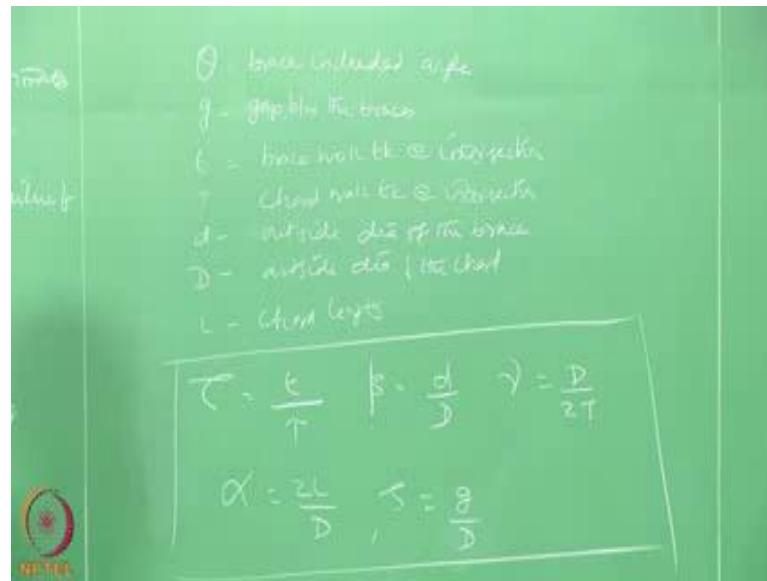 θ - brace included angle
g - gap b/w the braces
t - brace wall tk @ intersection
T chord wall tk @ intersection
d - outside dia of the brace
D - outside dia of the chord
L - chord length
τ = t/T β = d/D γ = D/2T
α = 2L/D , ζ = g/D
NPTEL